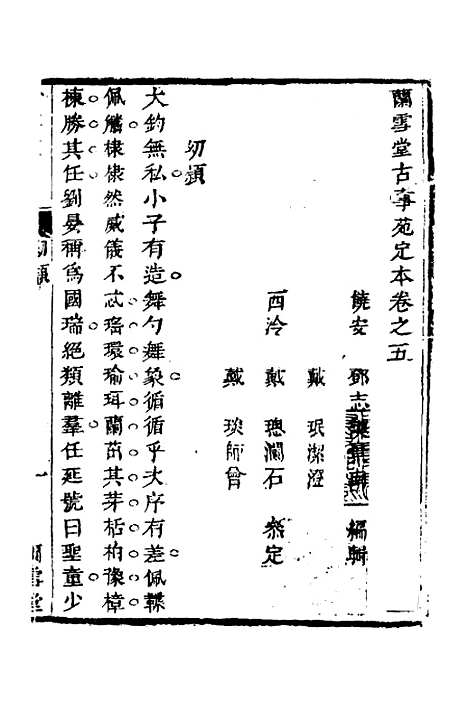 蘭雪堂古事苑定本卷之五
饒安 鄧志謨 編輯
戴 珉潔澄
西泠 戴 璁瀾石 叅定
戴 琰師曾
幼穎
大鈞無私小子有造舞勺舞象循循乎大序有差佩韘
佩觿棣棣然威儀不忒瑤環瑜珥蘭茁其芽栝柏豫樟
棟勝其任劉晏稱爲國瑞絕類離羣任延號曰聖童少
幼穎
一
蘭雪堂